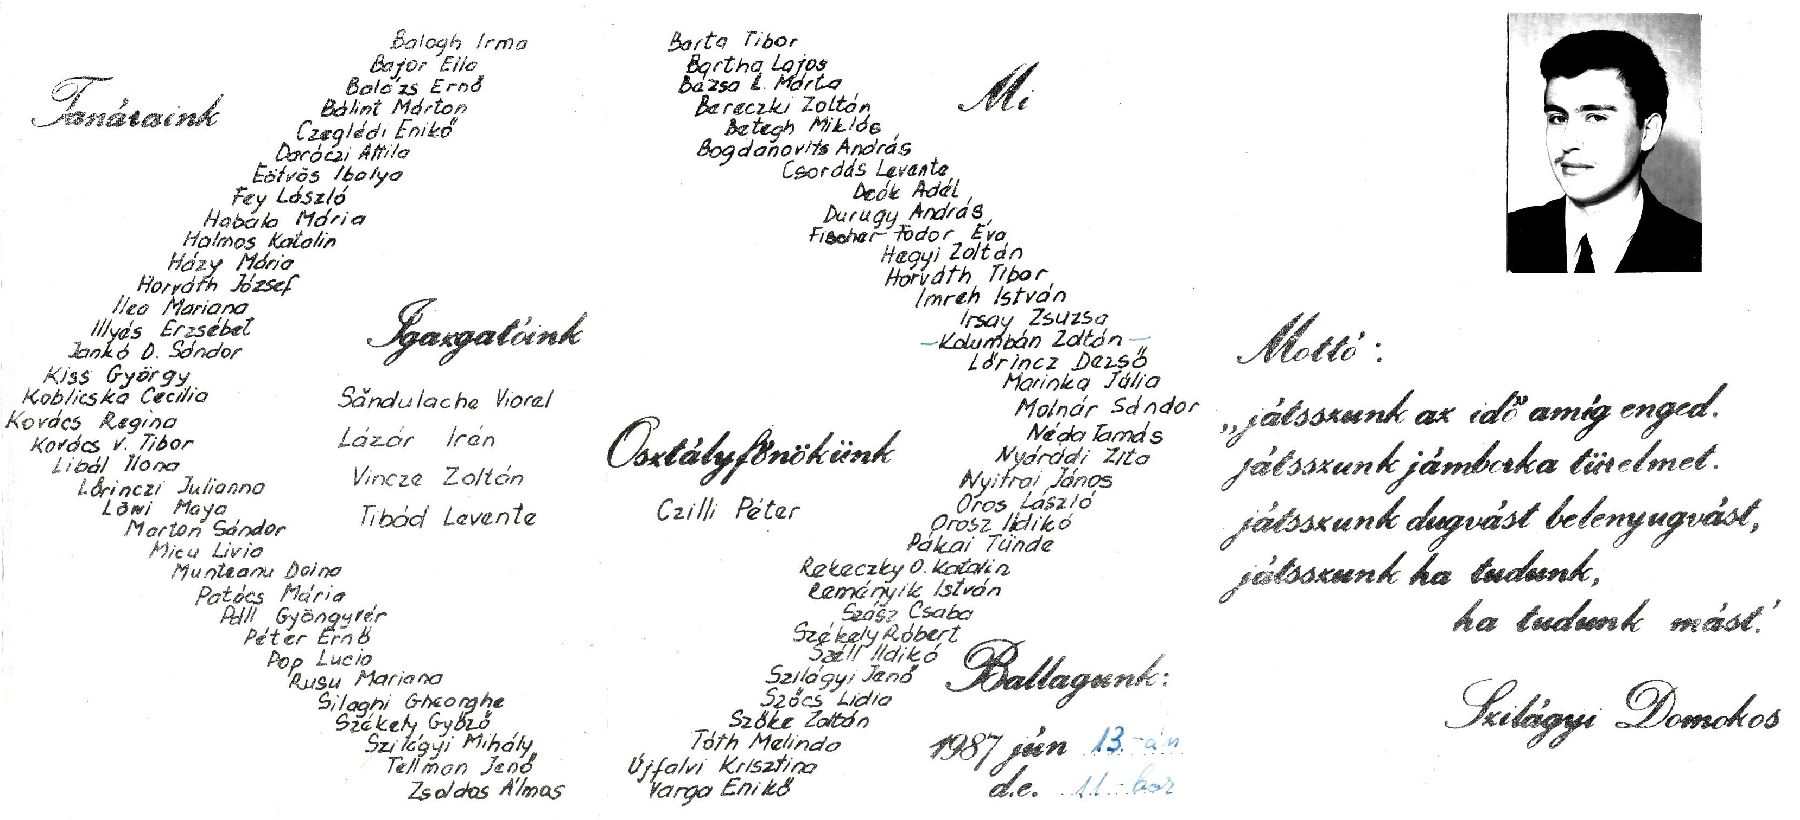 Tanáraink
Balogh Irma
Bajor Ella
Balázs Ernő
Bálint Márton
Czeglédi Enikő
Daróczi Attila
Eötvös Ibolya
Fey László
Habala Mária
Halmos Katalin
Házy Mária
Horváth József
Ilea Mariana
Illyés Erzsébet
Jankó D. Sándor
Kiss György
Koblicska Cecília
Kovács Regina
Kovács V. Tibor
Libál Ilona
Lőrinczi Julianna
Löwi Maya
Marton Sándor
Micu Livia
Munteanu Doina
Patócs Mária
Páll Gyöngyvér
Péter Ernő
Pop Lucia
Rusu Mariana
Silaghi Gheorghe
Székely Győző
Szilágyi Mihály
Tellman Jenő
Zsoldos Álmos
Igazgatóink
Săndulache Viorel
Lázár Irén
Vincze Zoltán
Tibád Levente
Osztályfőnökünk
Czilli Péter
Mi
Barta Tibor
Bartha Lajos
Bázsa L. Márta
Bereczki Zoltán
Betegh Miklós
Bogdanovits András
Csordás Levente
Deák Adél
Durugy András
Fischer Fodor Éva
Hegyi Zoltán
Horváth Tibor
Imreh István
Irsay Zsuzsa
-Kolumbán Zoltán-
Lőrincz Dezső
Marinka Júlia
Molnár Sándor
Néda Tamás
Nyárádi Zita
Nyitrai János
Oros László
Orosz Ildikó
Pákai Tünde
Rekeczky O. Katalin
Reményik István
Szász Csaba
Székely Róbert
Széll Ildikó
Szilágyi Jenő
Szőcs Lidia
Szőke Zoltán
Tóth Melinda
Újfalvi Krisztina
Varga Enikő
Ballagunk:
1987 jún 13.-án
d.e. 11.-kor
Mottó:
„játsszunk az idő amíg enged.
játsszunk jámborka türelmet.
játsszunk dugvást belenyugvást,
játsszunk ha tudunk,
ha tudunk mást!
Szilágyi Domokos